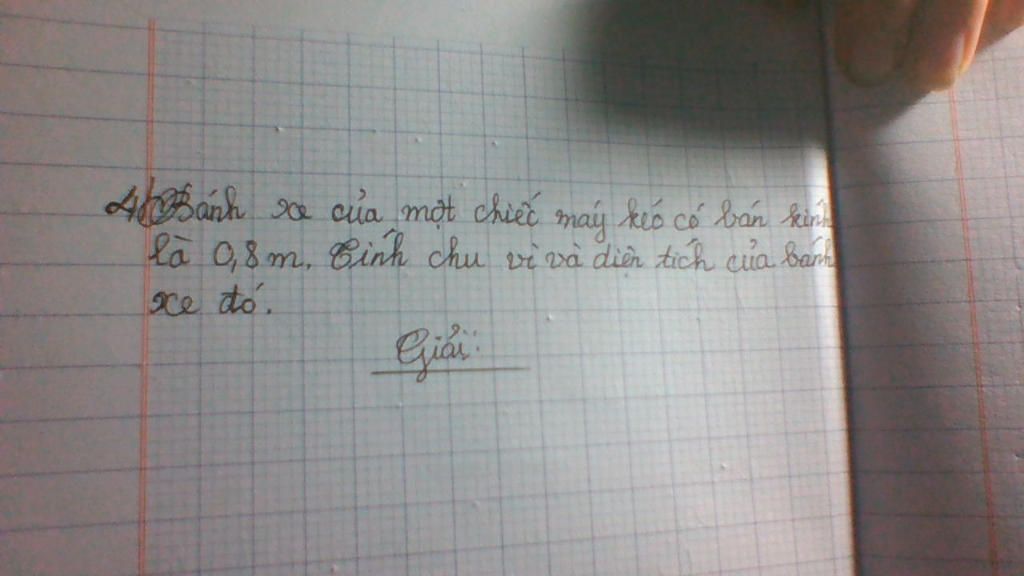 4) Bánh xe của một chiếc máy kéo có bán kính
là 0,8 m. Tính chu vi và diện tích của bánh
xe đó.
Giải: